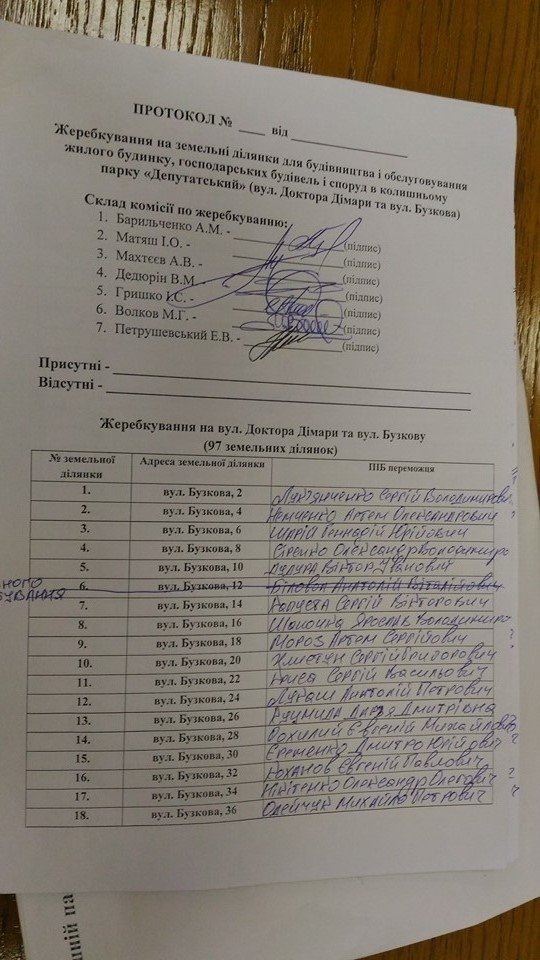 ПРОТОКОЛ № ____ від ____________
Жеребкування на земельні ділянки для будівництва і обслуговування
жилого будинку, господарських будівель і споруд в колишньому
парку «Депутатський» (вул. Доктора Дімари та вул. Бузкова)
Склад комісії по жеребкуванню:
1. Барильченко А.М. - (підпис)
2. Матяш І.О. - (підпис)
3. Махтєєв А.В. - (підпис)
4. Дедюрін В.М. - (підпис)
5. Гришко І.С. - (підпис)
6. Волков М.Г. - (підпис)
7. Петрушевський Е.В. - (підпис)
Присутні -
Відсутні -
Жеребкування на вул. Доктора Дімари та вул. Бузкову
(97 земельних ділянок)
№ земельної ділянки Адреса земельної ділянки ПІБ переможця
1. вул. Бузкова, 2 Сергій Володимирович
2. вул. Бузкова, 4 Немченко Артем Олександрович
3. вул. Бузкова, 6 Шарій Геннадій Юрійович
4. вул. Бузкова, 8 Сіренко Олександр Володимиро
5. вул. Бузкова, 10 Віктор Іванович
6. вул. Бузкова, 12 Біловол Анатолій Віталійович
7. вул. Бузкова, 14 Капуста Сергій Вікторович
8. вул. Бузкова, 16 Ярослав Володимиро
9. вул. Бузкова, 18 Мороз Артем Сергійович ?
10. вул. Бузкова, 20 Хлистун Сергій Григорович
11. вул. Бузкова, 22 Сергій Васильович
12. вул. Бузкова, 24 Лукаш Анатолій Петрович
13. вул. Бузкова, 26 Дмитрівна
14. вул. Бузкова, 28 Євгеній Михайлович
15. вул. Бузкова, 30 Єременко Дмитро Юрійович ?
16. вул. Бузкова, 32 Юханов Євгеній Павлович
17. вул. Бузкова, 34 Нікітенко Олександр Олегович ?
18. вул. Бузкова, 36 Олейчук Михайло Петрович ?